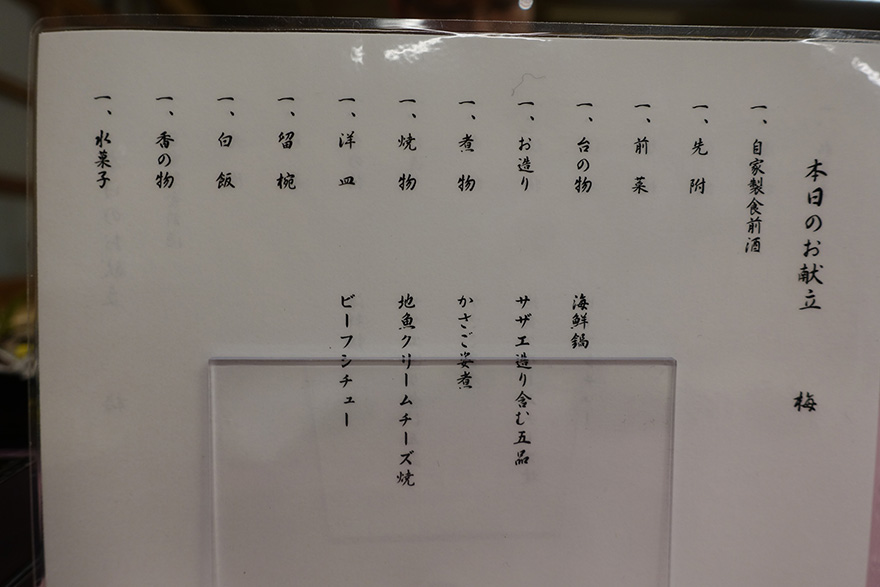 本日のお献立 梅
一、自家製食前酒
一、先附
一、前菜
一、台の物 海鮮鍋
一、お造り サザエ造り含む五品
一、煮物 かさご姿煮
一、焼物 地魚クリームチーズ焼
一、洋皿 ビーフシチュー
一、留椀
一、白飯
一、香の物
一、水菓子